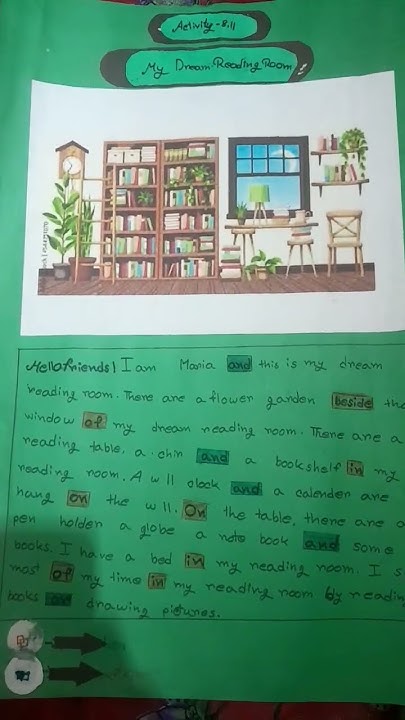 Activity - 8.11
My Dream Reading Room
Hello friends! I am Maria and this is my dream
reading room. There are a flower garden beside the
window of my dream reading room. There are a
reading table, a chin and a bookshelf in my
reading room. A w ll clock and a calender are
hang on the w ll. On the table, there are a
pen holder a globe a note book and some
books. I have a bed in my reading room. I s
most of my time in my reading room by reading
books drawing pictures.